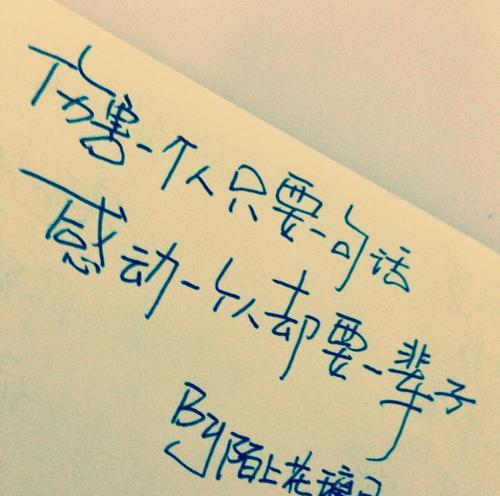 伤害一个人只要一句话
感动一个人却要一辈子
By陌上花